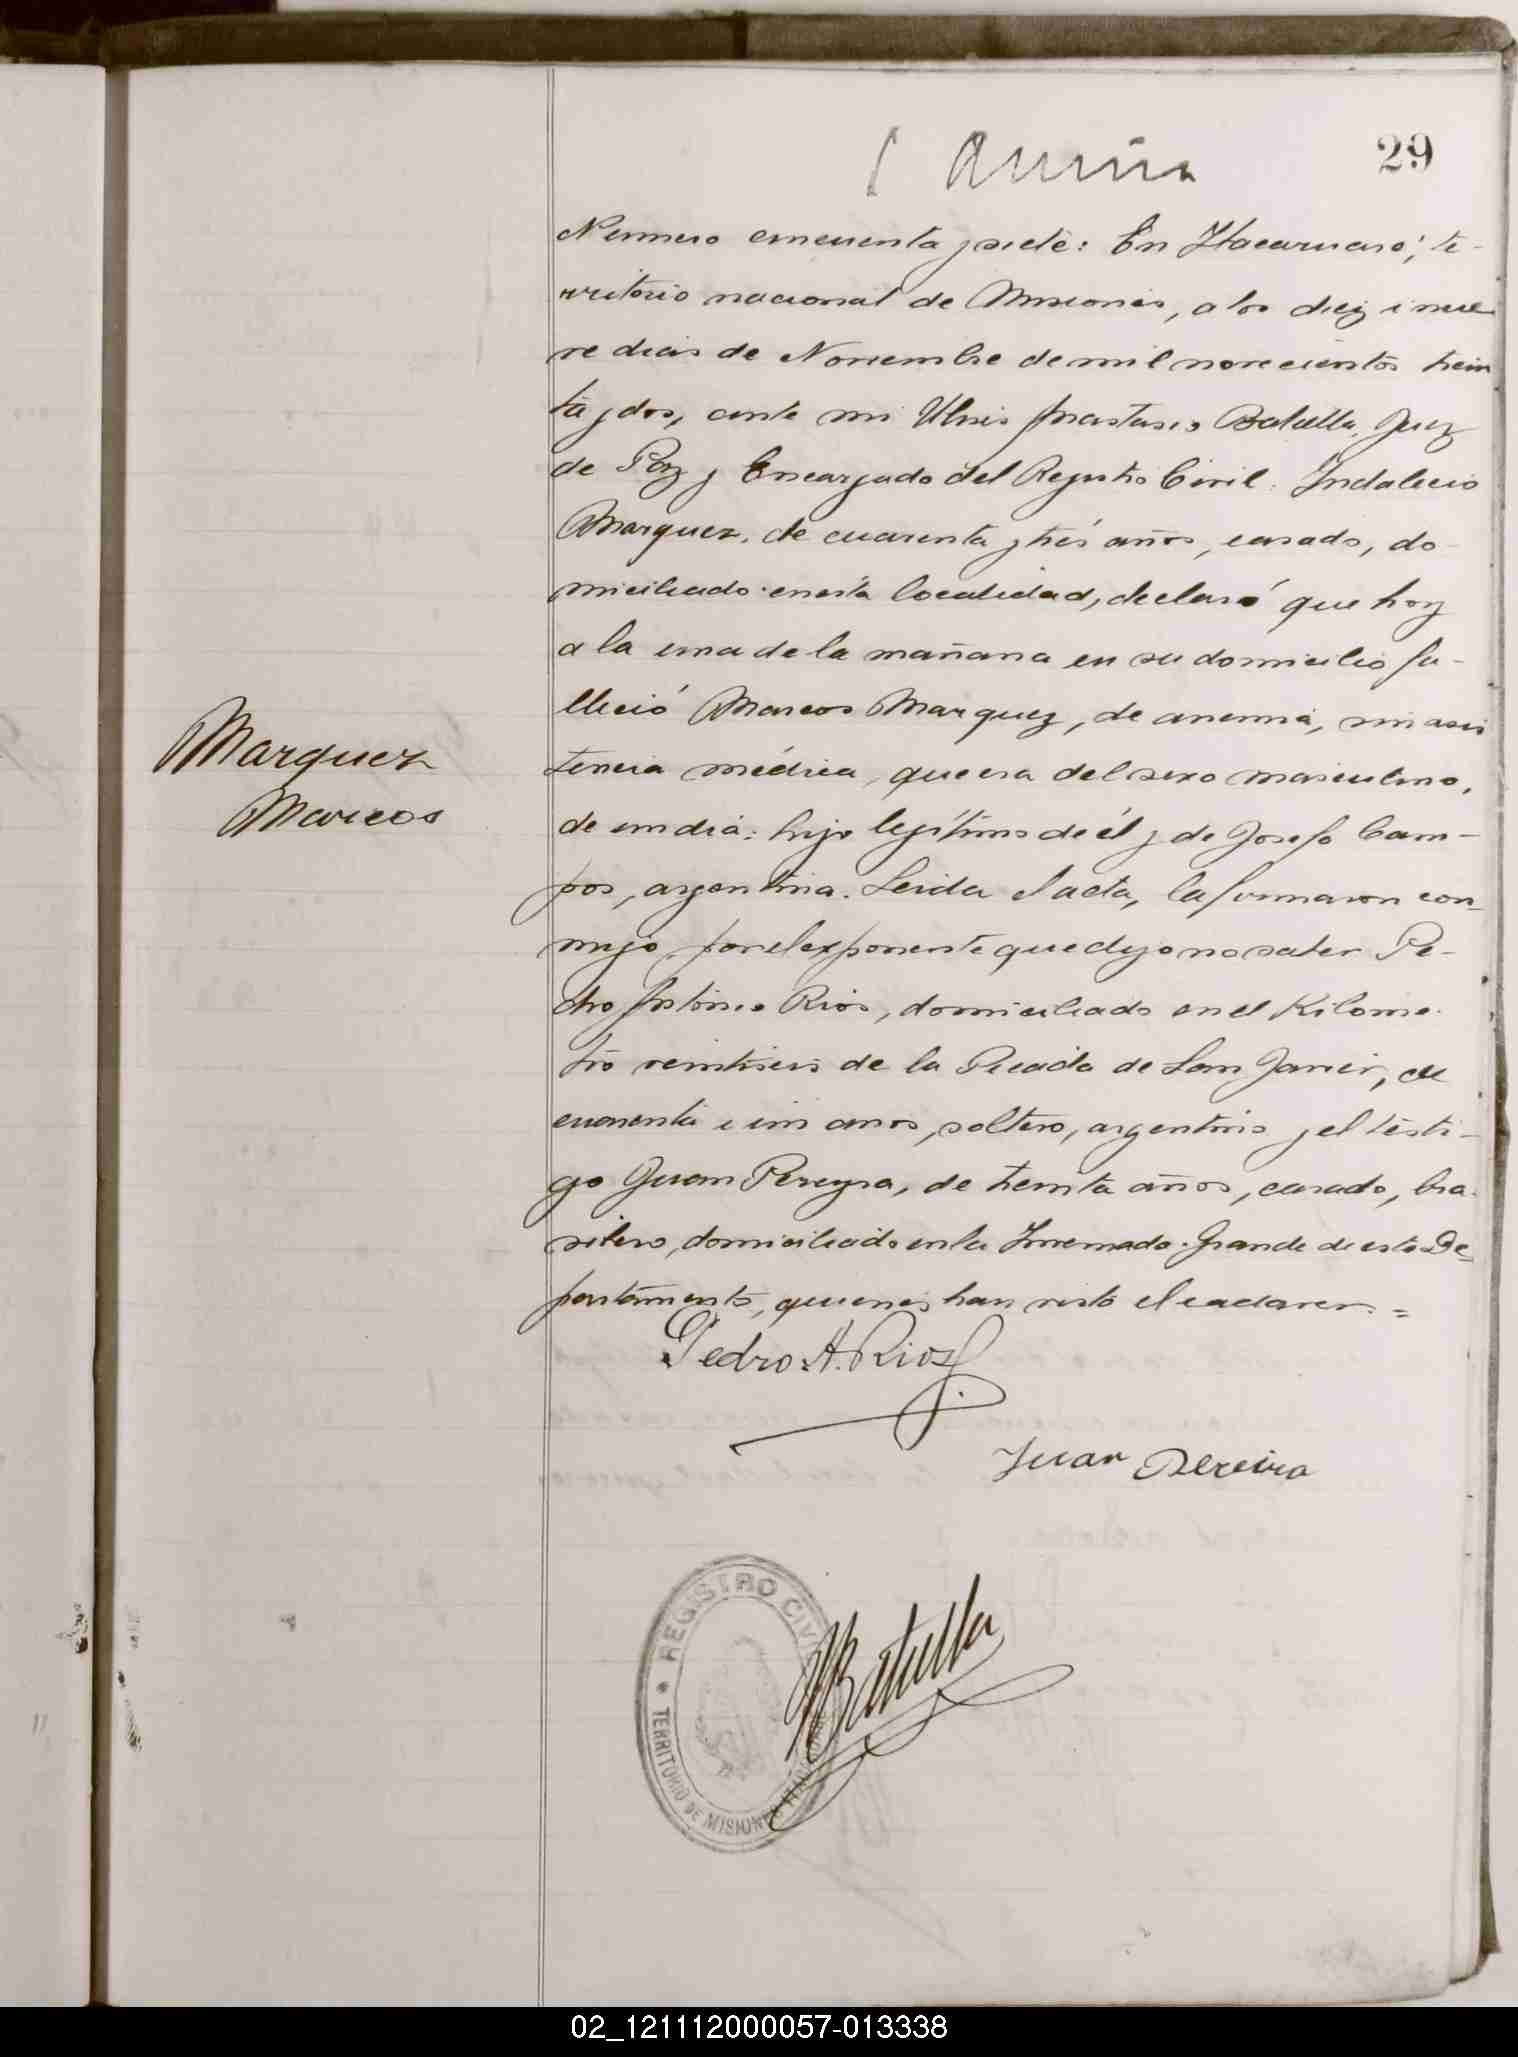 29
Numero cincuenta y siete: En Itacaruaré, te-
rritorio nacional de Misiones, a los diez i nue
ve dias de Noviembre de mil novecientos trein
ta y dos, ante mi Ulises Anastasio Batulla, Juez
de Paz y Encargado del Registro Civil. Indalecio
Marquez, de cuarenta y tres años, casado, do-
miciliado en esta localidad, declaró que hoy
a la una de la mañana en su domicilio fa-
lleció Marcos Marquez, de anemia, sin asis
tencia médica, que era del sexo masculino,
de un dia: hijo legítimo de él y de Josefa Cam-
pos, argentina. Leida el acta, la firmaron con-
migo por el exponente que dijo no saber Pe-
dro Antonio Rios, domiciliado en el Kilome-
tro veintiseis de la Picada de San Javier, de
cuarenta i un anos, soltero, argentino y el testi-
go Juan Pereyra, de treinta años, casado, bra-
silero, domiciliado en la Invernada Grande de este De-
partamento, quienes han visto el cadaver. =
Marquez
Marcos
Pedro A. Rios
Juan Pereira
REGISTRO CIVIL
TERRITORIO DE MISIONES
Batulla
02_121112000057-013338